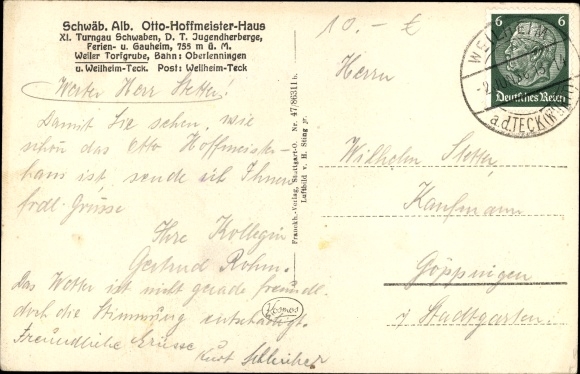 Schwäb. Alb. Otto-Hoffmeister-Haus
XI. Turngau Schwaben, D. T. Jugendherberge,
Ferien- u. Gauheim, 755 m ü. M.
Weiler Torfgrube, Bahn: Oberlenningen
u. Weilheim-Teck. Post: Weilheim-Teck
Werter Herr Stetter!
Damit Sie sehen, wie
schön das Otto Hoffmeister-
haus ist, sende ich Ihnen
frdl. Grüsse
Ihre Kollegin
Gertrud Rohm.
Das Wetter ist nicht gerade freundl.
doch die Stimmung entschädigt.
Freundliche Grüsse
Kurt
Kosmos
Franckh-Verlag, Stuttgart-O. Nr. 47/86311 b.
Luftbild v. H. Sting jr.
10.- €
Herrn
Wilhelm Stetter,
Kaufmann
Göppingen
Stadtgarten.
6 6
Deutsches Reich
WEILHEIM
a.d.TECK